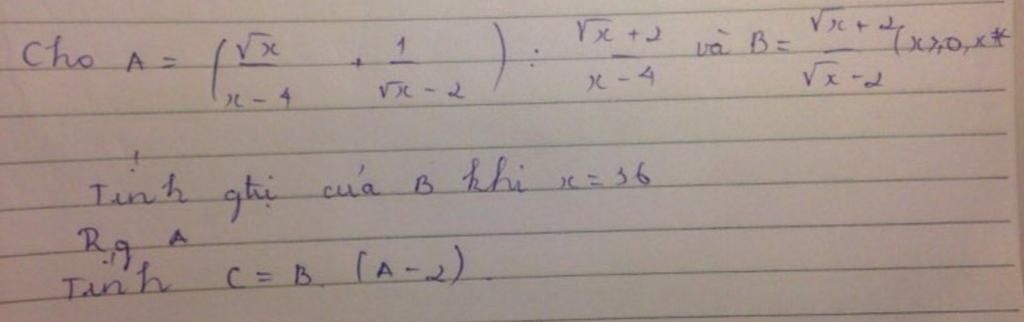 Cho A = (√x/(x-4) + 1/(√x-2)) : (√x+2)/(x-4) và B = (√x+2)/(√x-2) (x≥0, x≠
Tính gtrị của B khi x=36
R.g A
Tính C = B. (A-2).